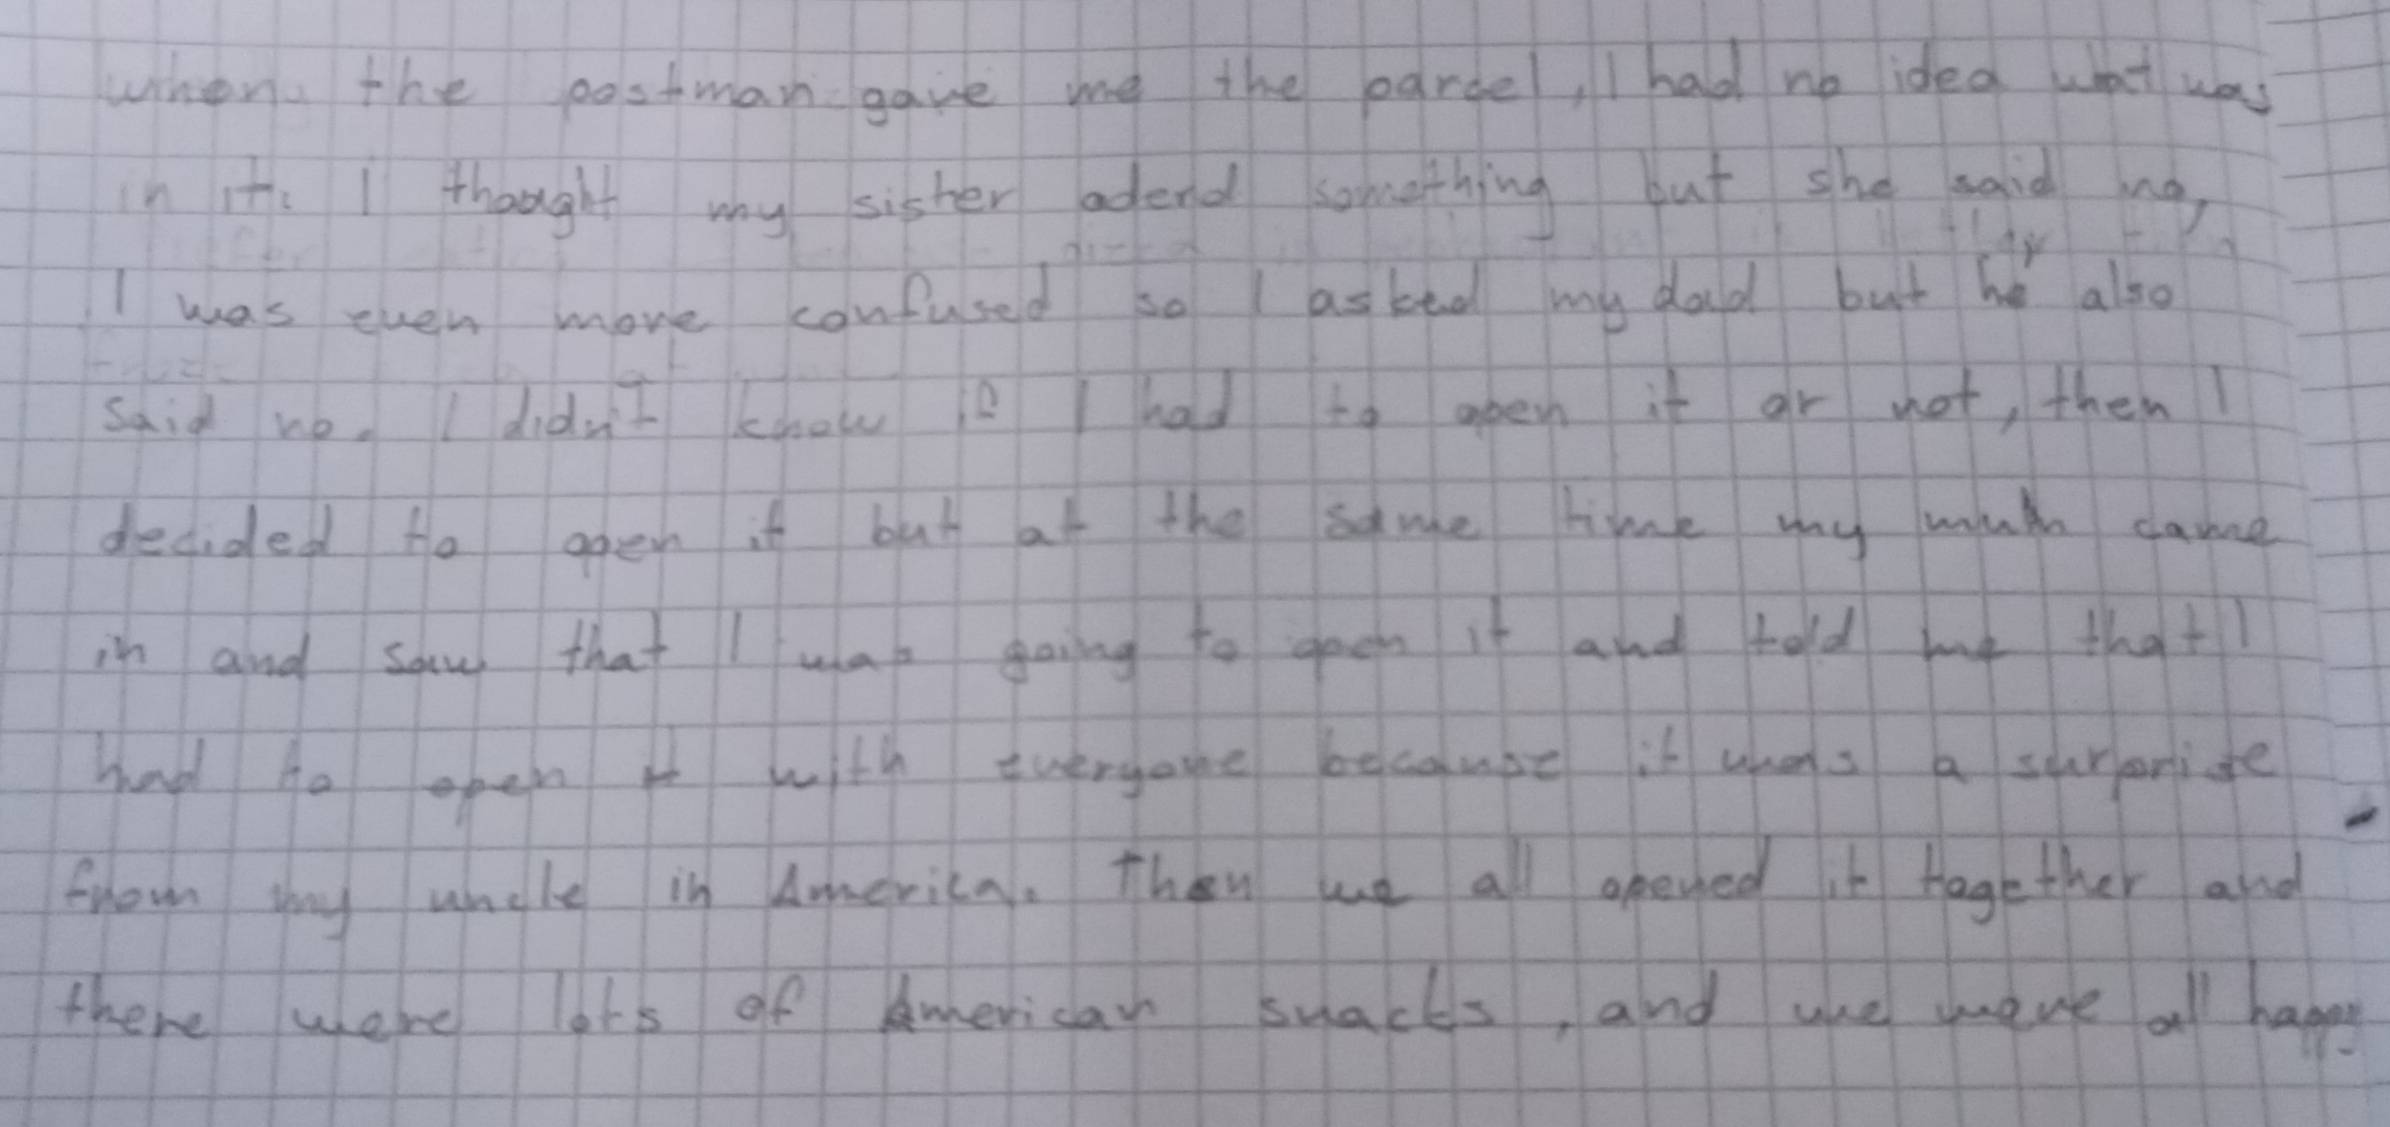 when the postman gave me the parcel, I had no idea what was
in it. I thought my sister oderd something but she said no,
I was even more confused so I asked my dad but he also
said no. I didn't know if I had to open it or not, then I
decided to open it but at the same time my mum came
in and saw that I was going to open it and told me that I
had to open it with everyone because it was a surprise
from my uncle in America. Then we all opened it together and
there were lots of American snacks, and we were all happy